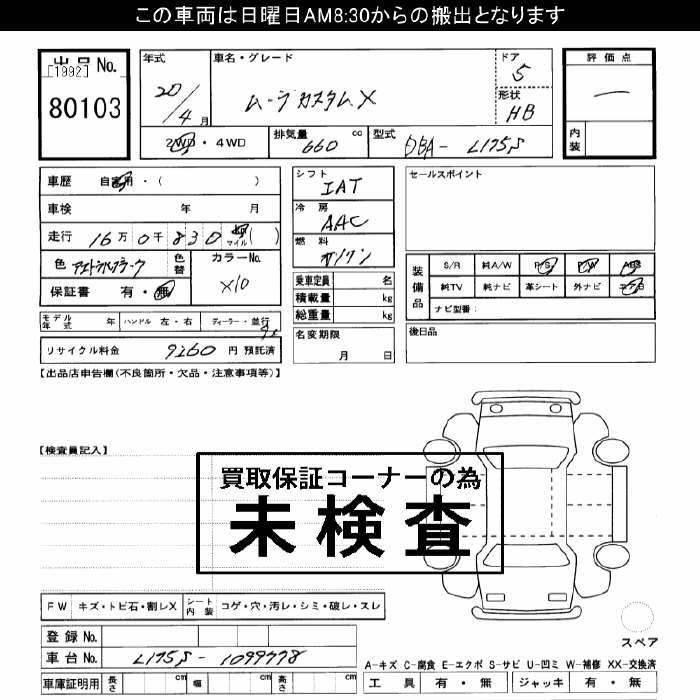 この車両は日曜日AM8:30からの搬出となります
出品 No.
[1992]
80103
年式
20/4月
車名・グレード
ムーヴカスタムX
ドア
5
形状
HB
評価点
内装
2WD・4WD
排気量 660 cc
型式 DBA- L175S
車歴 自家用・( )
車検 年 月
走行 16万 0千 830 km マイル ( )
色
色替
カラーNo.
X10
保証書 有・無
モデル年式 年 ハンドル 左・右 ディーラー・並行
リサイクル料金 9260 円 預託済
シフト
IAT
冷房
AAC
燃料
ガソリン
乗車定員 名
積載量 kg
総重量 kg
名変期限
月 日
セールスポイント
装備品
S/R 純A/W P/S P/W ABS
純TV 純ナビ 革シート 外ナビ エアB
ナビ型番:
後日品
【出品店申告欄(不良箇所・欠品・注意事項等)】
【検査員記入】
買取保証コーナーの為
未検査
FW キズ・トビ石・割レX
シート内装 コゲ・穴・汚レ・シミ・破レ・スレ
登録No.
車台No. L175S- 1099778
車庫証明用 長さ cm 幅 cm 高さ cm
スペア
A-キズ C-腐食 E-エクボ S-サビ U-凹ミ W-補修 XX-交換済
工具 有・無 ジャッキ 有・無